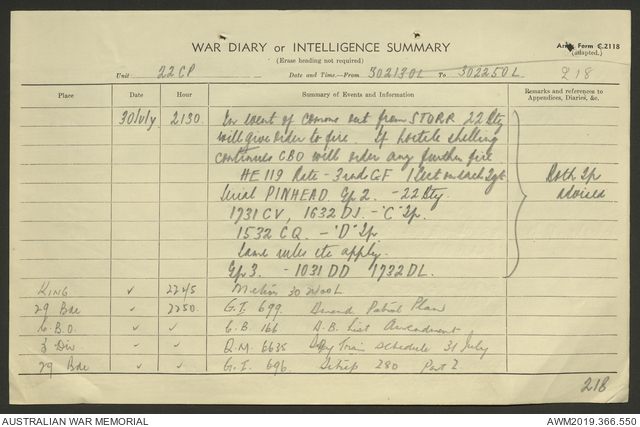 WAR DIARY or INTELLIGENCE SUMMARY
Army Form C.2118
(adapted.)
(Erase heading not required)
Unit 22 CP Date and Time.—From 302130L To 302250L 218
Place Date Hour Summary of Events and Information Remarks and references to Appendices, Diaries, &c.
30 July 2130 In event of comms out from STORR 22 Bty
will give order to fire. If hostile shelling
continues CBO will order any further fire
HE 119 Rate - 3 rds GF on each tgt Both Tps
Serial PINHEAD. Gp 2. - 22 Bty. advised
1731 CV, 1632 DJ. - "C" Tp.
1532 CQ - "D" Tp.
Same rules etc apply.
Gp 3. - 1031 DD 1732 DL.
KING ✓ 2245 30
29 Bde ✓ 2250 G.I. 699 Patrol Plan
C.B.O. ✓ ✓ G.B. 166 A.B. List Amendment
3 Div ✓ ✓ Q.M. 6635 Train Schedule 31 July
29 Bde ✓ ✓ G.I. 696 Sitrep 280 Part 2
218
AUSTRALIAN WAR MEMORIAL AWM2019.366.550